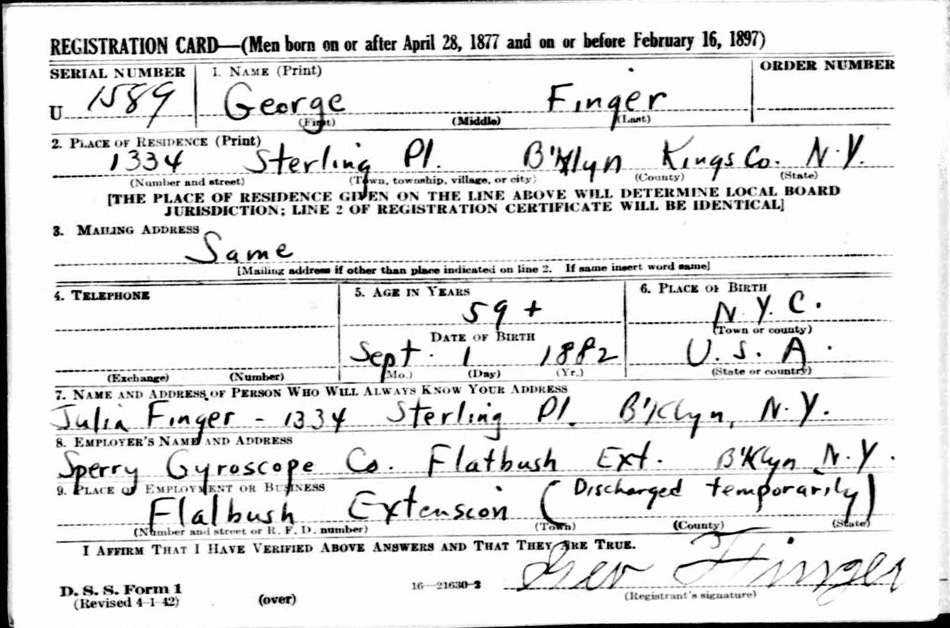 REGISTRATION CARD—(Men born on or after April 28, 1877 and on or before February 16, 1897)
SERIAL NUMBER 1. NAME (Print) ORDER NUMBER
U 1589 George Finger
(First) (Middle) (Last)
2. PLACE OF RESIDENCE (Print)
1334 Sterling Pl. B'klyn Kings Co. N.Y.
(Number and street) (Town, township, village, or city) (County) (State)
[THE PLACE OF RESIDENCE GIVEN ON THE LINE ABOVE WILL DETERMINE LOCAL BOARD
JURISDICTION; LINE 2 OF REGISTRATION CERTIFICATE WILL BE IDENTICAL]
3. MAILING ADDRESS
Same
[Mailing address if other than place indicated on line 2. If same insert word same]
4. TELEPHONE 5. AGE IN YEARS 6. PLACE OF BIRTH
59+ N.Y.C.
DATE OF BIRTH (Town or county)
Sept. 1 1882 U.S.A.
(Exchange) (Number) (Mo.) (Day) (Yr.) (State or country)
7. NAME AND ADDRESS OF PERSON WHO WILL ALWAYS KNOW YOUR ADDRESS
Julia Finger - 1334 Sterling Pl. B'klyn, N.Y.
8. EMPLOYER'S NAME AND ADDRESS
Sperry Gyroscope Co. Flatbush Ext. B'klyn N.Y.
9. PLACE OF EMPLOYMENT OR BUSINESS
Flalbush Extension (Discharged temporarily)
(Number and street or R. F. D. number) (Town) (County) (State)
I AFFIRM THAT I HAVE VERIFIED ABOVE ANSWERS AND THAT THEY ARE TRUE.
Geo Finger
D. S. S. Form 1 16—21630-2
(Revised 4-1-42) (over) (Registrant's signature)